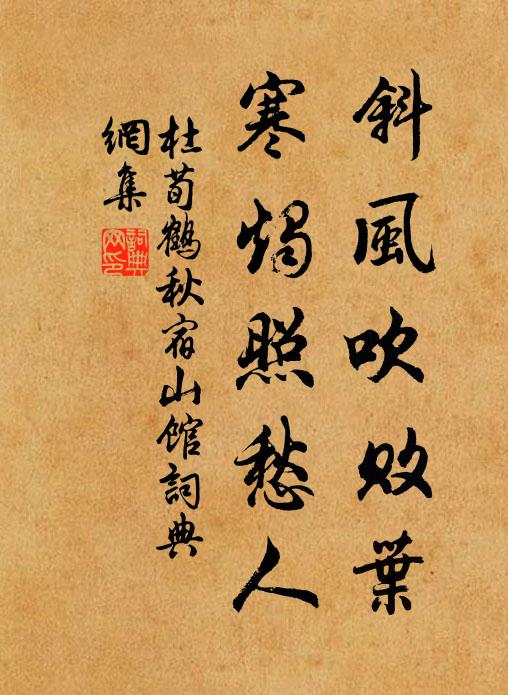 斜風吹败葉
寒燭照愁人
杜荀鶴秋宿山館詞典
網集
詞典
网印